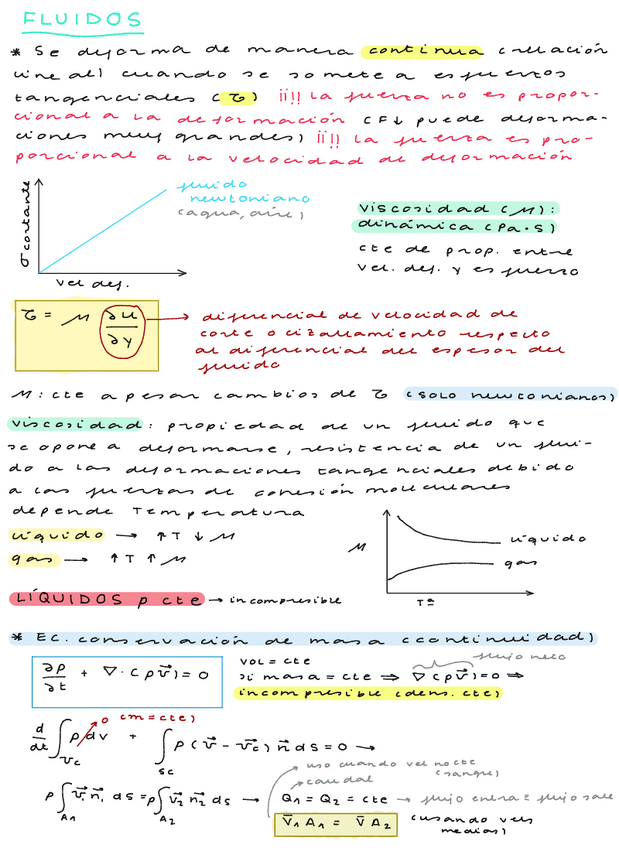 FLUIDOS
* Se deforma de manera continua (relación
lineal) cuando se somete a esfuerzos
tangenciales (τ) ¡¡!! La fuerza no es propor-
cional a la deformación (F↓ puede deforma-
ciones muy grandes) ¡¡!! La fuerza es pro-
porcional a la velocidad de deformación
σ cortante
fluido
newtoniano
(agua, aire)
vel def.
viscosidad (μ):
dinámica (Pa·s)
cte de prop. entre
vel. def. y esfuerzo
τ = μ ∂u/∂y → diferencial de velocidad de
corte o cizallamiento respecto
al diferencial del espesor del
fluido
μ: cte a pesar cambios de τ (solo newtonianos)
viscosidad: propiedad de un fluido que
se opone a deformarse, resistencia de un flui-
do a las deformaciones tangenciales debido
a las fuerzas de cohesión moleculares
depende Temperatura
líquido → ↑T ↓μ
gas → ↑T ↑μ
μ
líquido
gas
Tª
LÍQUIDOS ρ cte → incompresible
* Ec. conservación de masa (continuidad)
∂ρ/∂t + ∇·(ρv⃗) = 0
vol = cte
flujo neto
si masa = cte ⇒ ∇(ρv⃗) = 0 ⇒
incompresible (dens. cte)
d/dt ∫vc ρ dv + ∫sc ρ(v⃗ - v⃗c) n⃗ ds = 0 →
0 (m = cte)
uso cuando vel no cte
(sangre)
caudal
ρ ∫A1 v⃗1 n⃗1 ds = ρ ∫A2 v⃗2 n⃗2 ds → Q1 = Q2 = cte → flujo entra = flujo sale
V̄1 A1 = V̄ A2
(usando vels
medias)